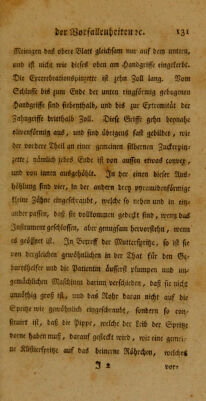 der Vorfallenheiten ⁊c. 131
Meinzen das obere Blatt gleichsam nur auf dem untern,
und ist nicht wie dieses oben am Handgriffe eingekerbt.
Die Excerebrationspinzette ist zehn Zoll lang. Vom
Schlusse bis zum Ende der unten ringförmig gebogenen
Handgriffe sind siebenthalb, und bis zur Extremität der
Zahngriffe briethalb Zoll. Jede Griffe geht beynahe
circumflex aus, und sind übrigens fast gebildet, wie
der vordere Theil an einer gemeinen silbernen Zuckerpin-
zette; nämlich jedes Ende ist von aussen etwas convex,
und von innen ausgehöhlt. In der einen dieser Aus-
höhlung sind vier, in der andern drey pyramidenförmige
kleine Zähne eingeschraubt, welche so neben und in ein-
ander passen, daß sie vollkommen gedeckt sind, wenn das
Instrument geschlossen, aber genugsam hervorstehn, wenn
es geöffnet ist. In Betreff der Mutterspritze, so ist sie
von dergleichen gewöhnlichen in der That für den Ge-
burtshelfer und die Patientin äusserst plumpen und un-
gemächlichen Maschinen darinn verschieden, daß sie nicht
unnöthig groß ist, und das Rohr daran nicht auf die
Spritze wie gewöhnlich eingeschraubt, sondern so con-
struiret ist, daß die Pippe, welche der Leib der Spritze
vorne haben muß, darauf gesteckt wird, wie eine gemei-
ne Klystierspritze auf das beinerne Röhrchen, welches
J 2 vor-